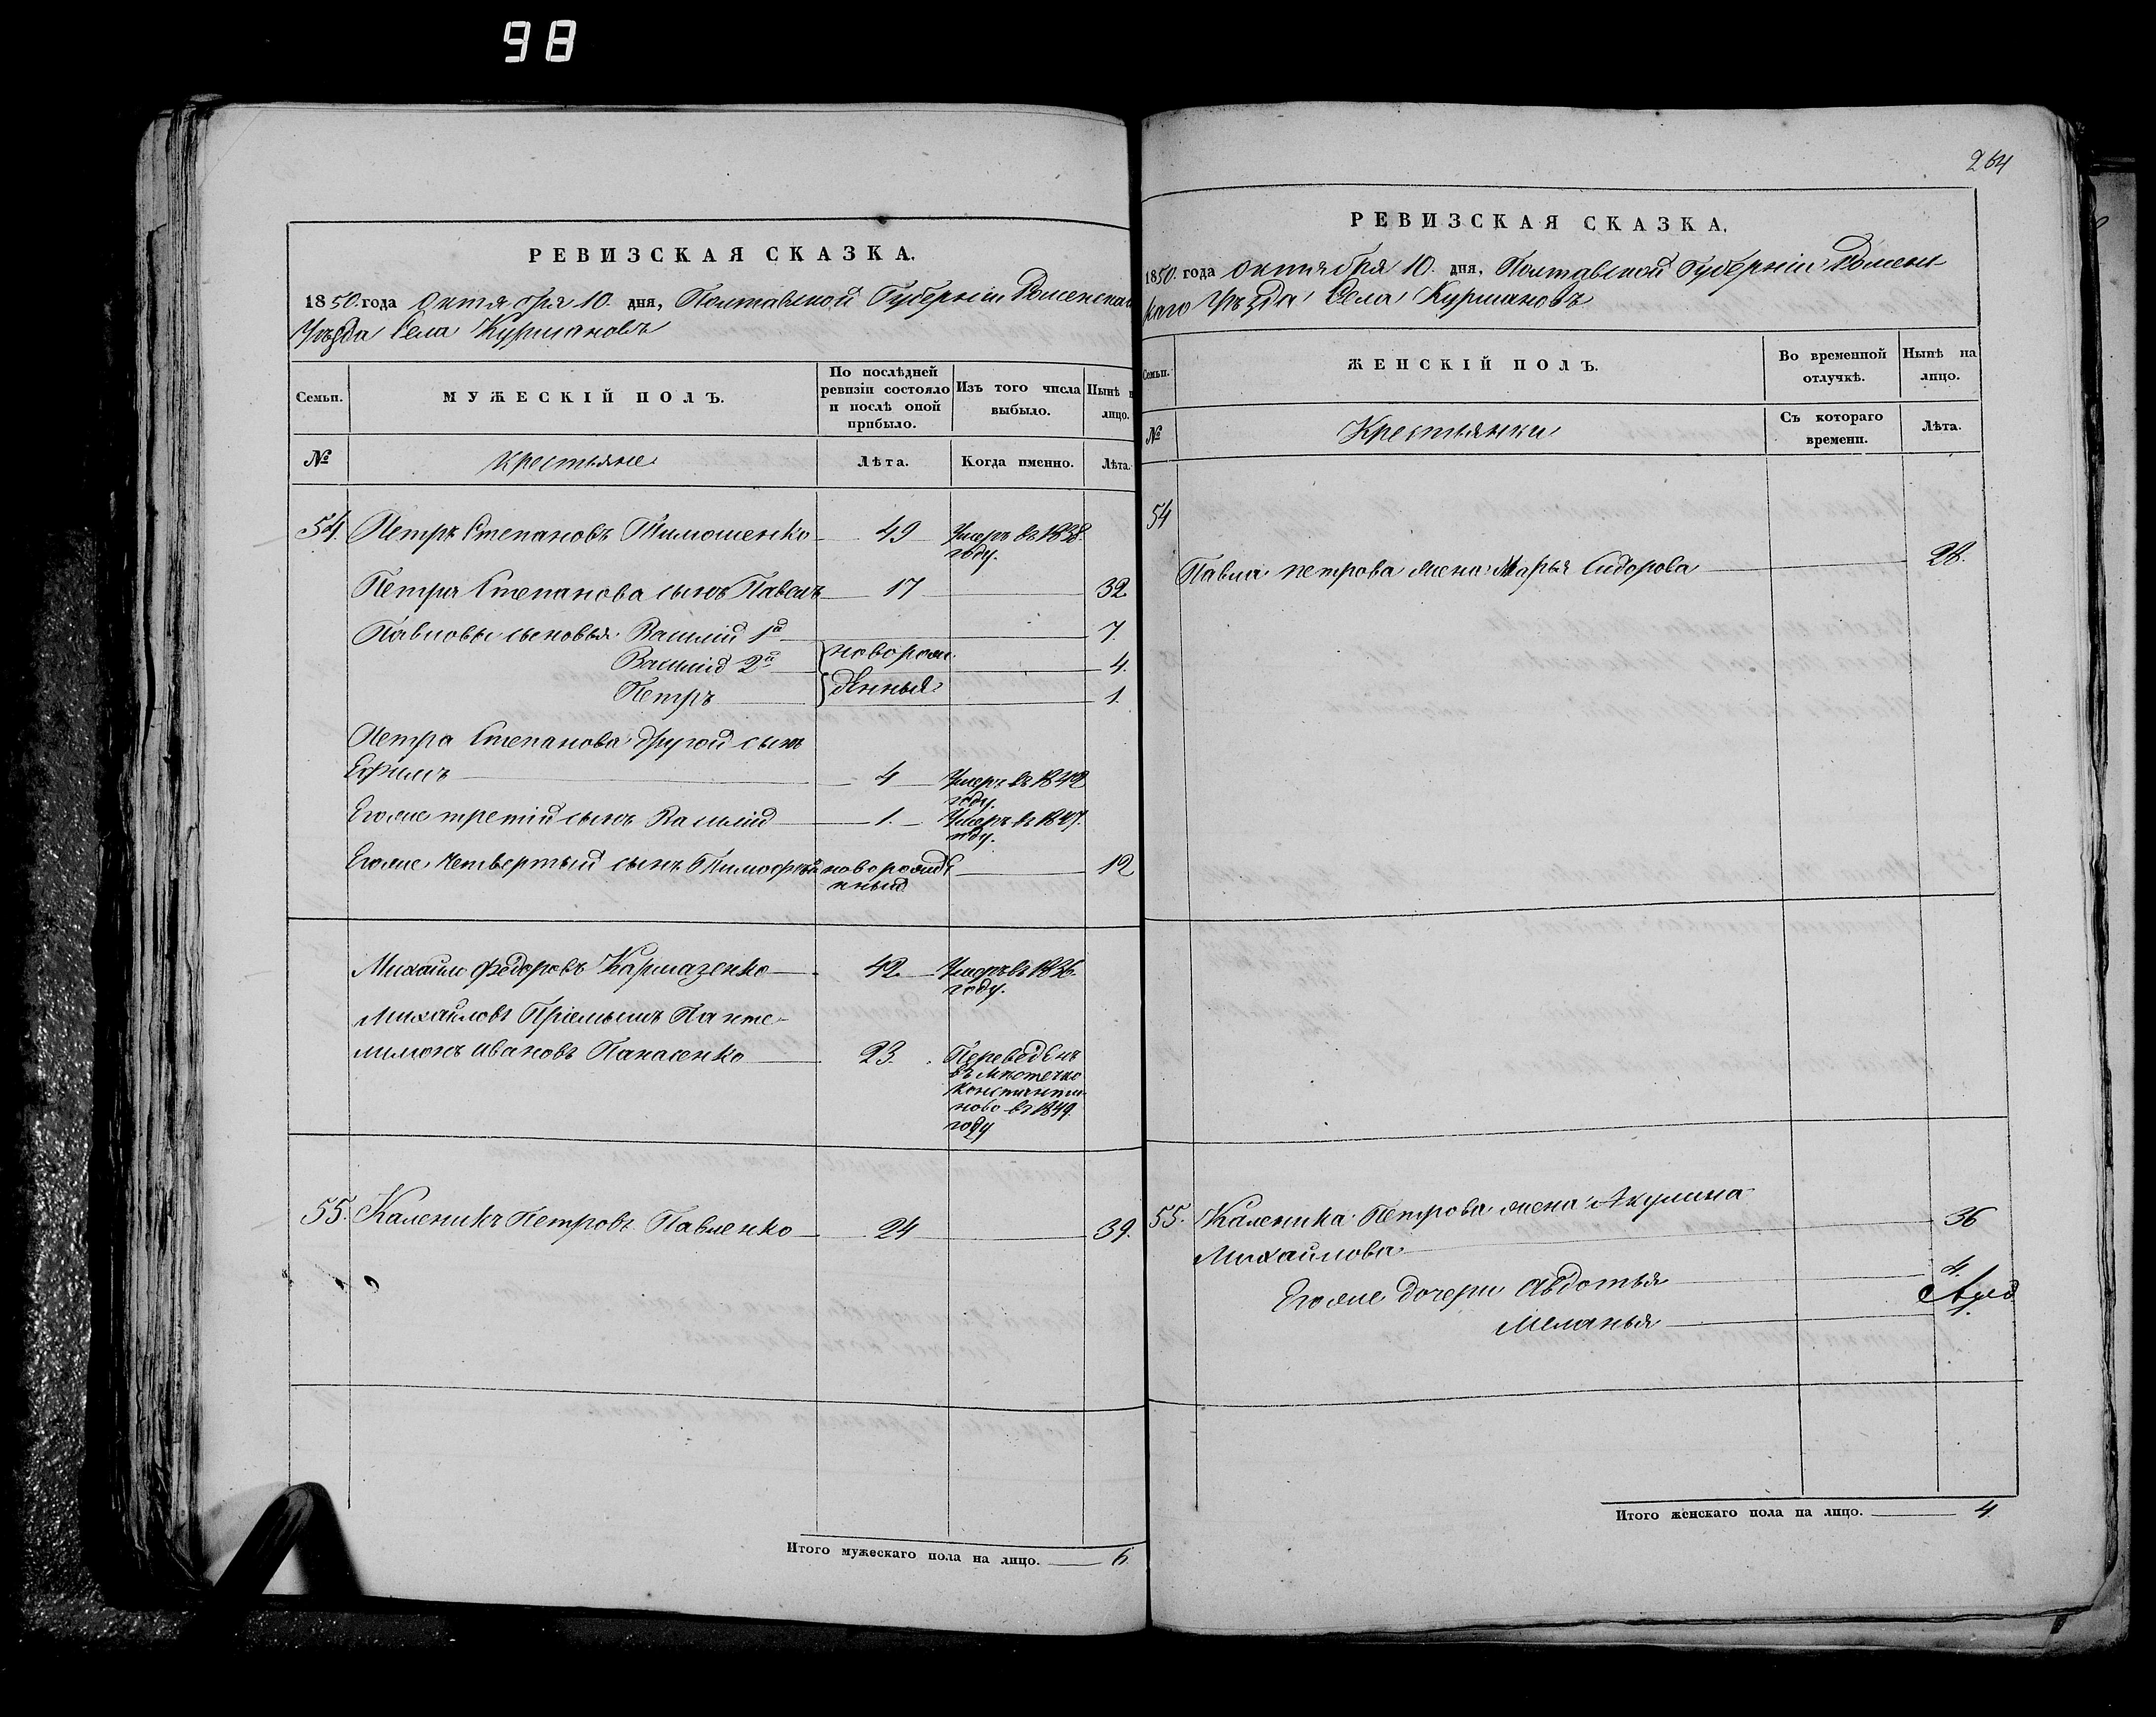 98
РЕВИЗСКАЯ СКАЗКА.
1850. года Октября 10. дня, Полтавской Губерніи Роменскаго
Уѣзда Села Курмановъ
Семьи.
МУЖЕСКІЙ ПОЛЪ.
По послѣдней ревизіи состояло и послѣ оной прибыло.
Изъ того числа выбыло.
Нынѣ н лицо.
№
Крестьяне
Лѣта.
Когда именно.
Лѣта.
54. Петръ Степановъ Тимошенко 49 Умеръ въ 1838.
году.
Петра Степанова сынъ Павелъ 17 32
Павловы сыновья Василій 1й 7.
Василій 2й новорож 4.
Петръ денныя 1.
Петра Степанова другой сынъ
Ефимъ 4 Умеръ въ 1842
году.
Егоже третій сынъ Василій 1. Умеръ въ 1847.
году.
Егоже четвертый сынъ Тимофѣй новорожде 12
нный
Михайло Федоровъ Кармазенко 42 Умеръ въ 1836.
году.
Михайловъ Пріемышъ Панте-
лимонъ Ивановъ Панасенко 23. Переведенъ
въ мѣстечко
Константи
ново въ 1849.
году
55. Каленикъ Петровъ Павленко 24 39.
Итого мужескаго пола на лицо. 6.
264
РЕВИЗСКАЯ СКАЗКА.
1850. года Октября 10. дня, Полтавской Губерніи Роменс
каго Уѣзда Села Курмановъ
Семьи.
ЖЕНСКІЙ ПОЛЪ.
Во временной отлучкѣ.
Нынѣ на лицо.
№
Крестьянки
Съ котораго времени.
Лѣта.
54
Павла Петрова жена Марья Сидорова 28.
55. Каленика Петрова жена Акулина
Михайлова 36
Егоже дочери Авдотья 4.
Меланья
Итого женскаго пола на лицо. 4